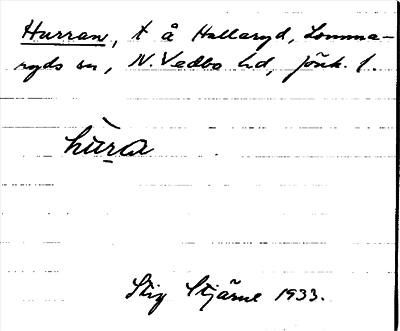 Hurran, t å Hallaryd, Lomma-
ryds sn, N. Vedbo hd, Jönk. l.
hùra
Stig Stjärne 1933.